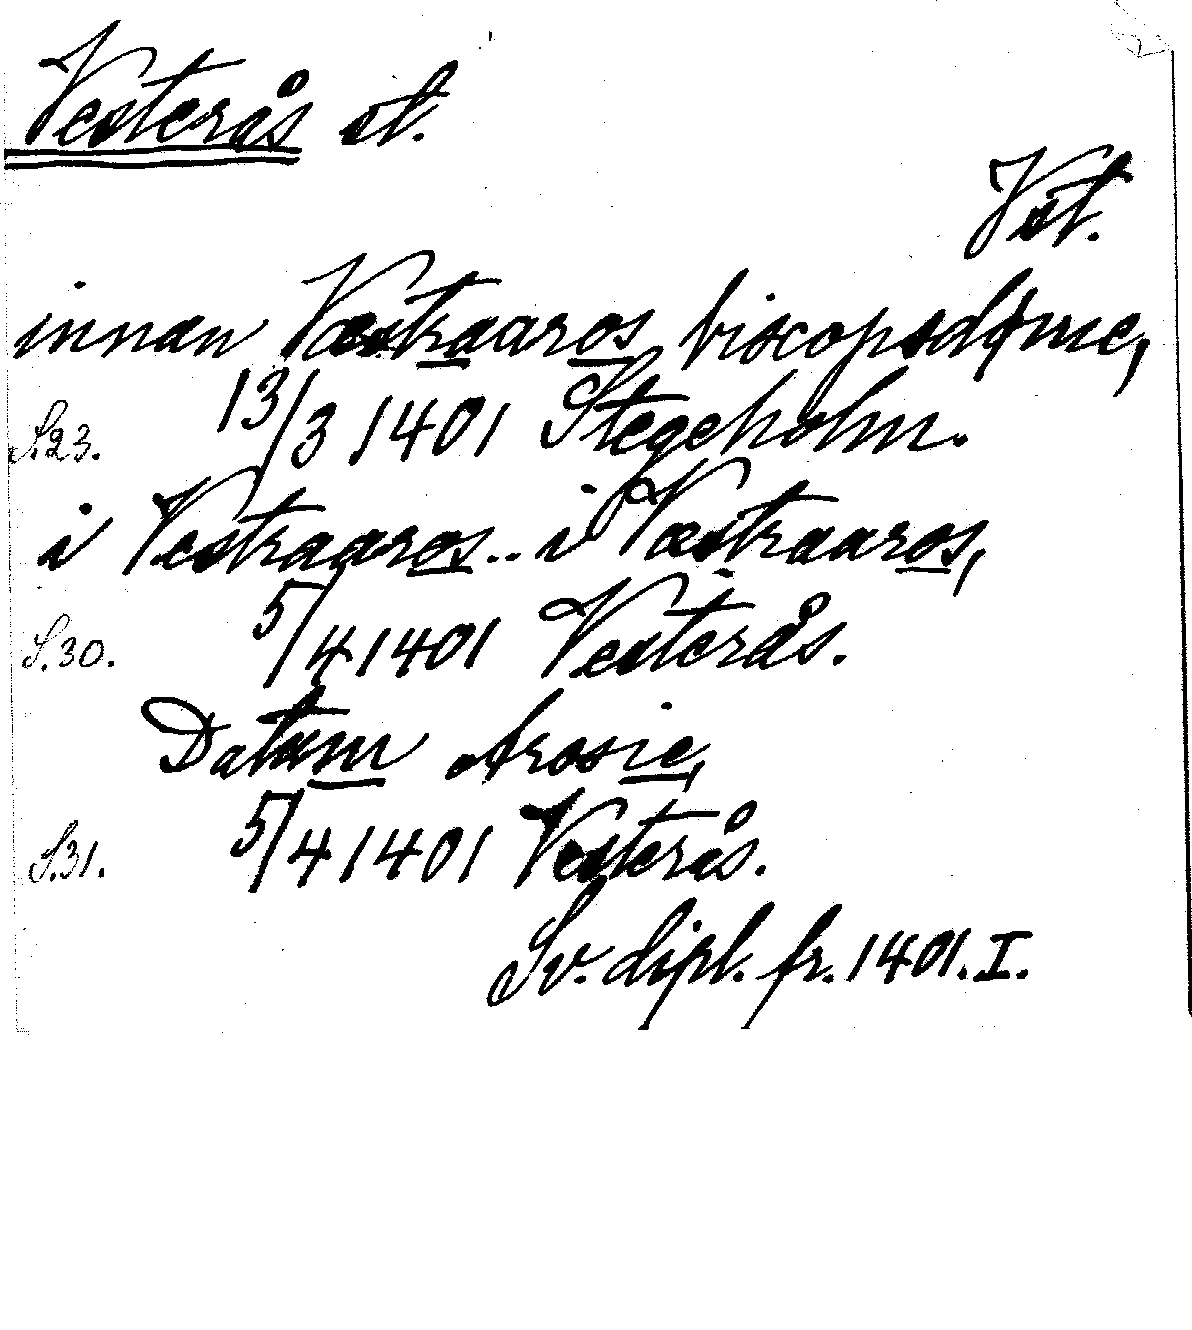 Vesterås st.
Vst.
innan Væstraaros biscopsdøme,
S.23. 13/3 1401 Stegeholm.
i Vestraaros.. i Væstraaros,
S.30. 5/4 1401 Vesterås.
Datum Arosie,
S.31. 5/4 1401 Vesterås.
Sv. dipl. fr. 1401. I.